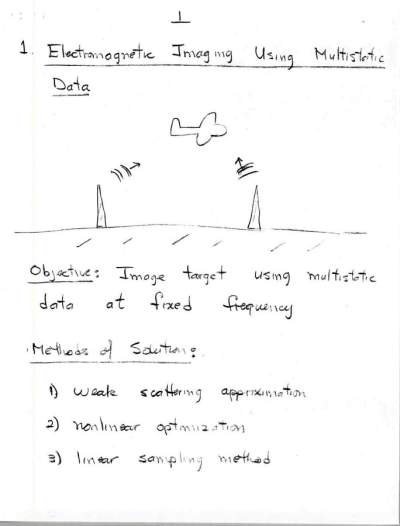 1
1. Electromagnetic Imaging Using Multistatic
Data
Objective: Image target using multistatic
data at fixed frequency
Methods of Solution:
1) weak scattering approximation
2) nonlinear optimization
3) linear sampling method